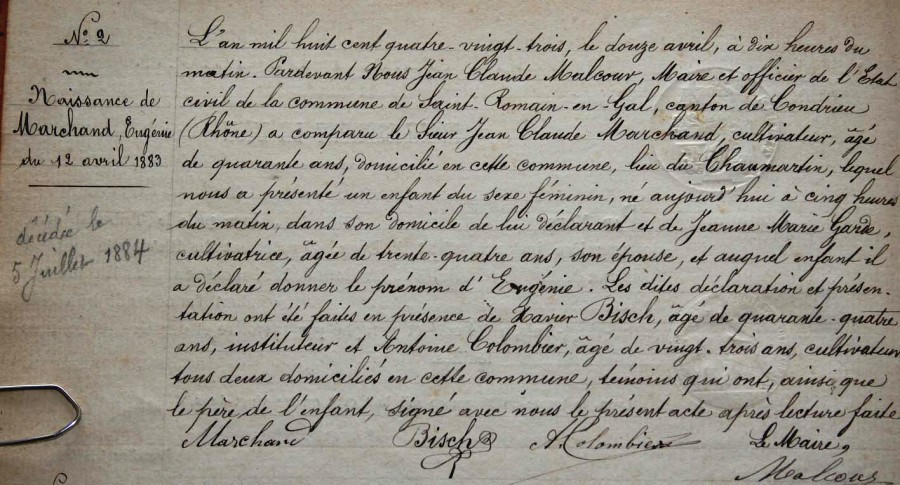 Nº 2
Naissance de
Marchand, Eugénie
du 12 avril 1883
décédée le
5 Juillet 1884
L'an mil huit cent quatre-vingt-trois, le douze avril, à dix heures du
matin. Pardevant Nous Jean Claude Malcour, Maire et officier de l'Etat
civil de la commune de Saint-Romain-en-Gal, canton de Condrieu
(Rhône) a comparu le Sieur Jean Claude Marchand, cultivateur, âgé
de quarante ans, domicilié en cette commune, lieu du Chaumartin, lequel
nous a présenté un enfant du sexe féminin, né aujourd'hui à cinq heures
du matin, dans son domicile de lui déclarant et de Jeanne Marie Garde,
cultivatrice, âgée de trente-quatre ans, son épouse, et auquel enfant il
a déclaré donner le prénom d'Eugénie. Les dites déclaration et présen-
tation ont été faites en présence de Xavier Bisch, âgé de quarante-quatre
ans, instituteur et Antoine Colombier, âgé de vingt-trois ans, cultivateur
tous deux domiciliés en cette commune, témoins qui ont, ainsi que
le père de l'enfant, signé avec nous le présent acte après lecture faite
Marchand Bisch A. Colombier Le Maire,
Malcour